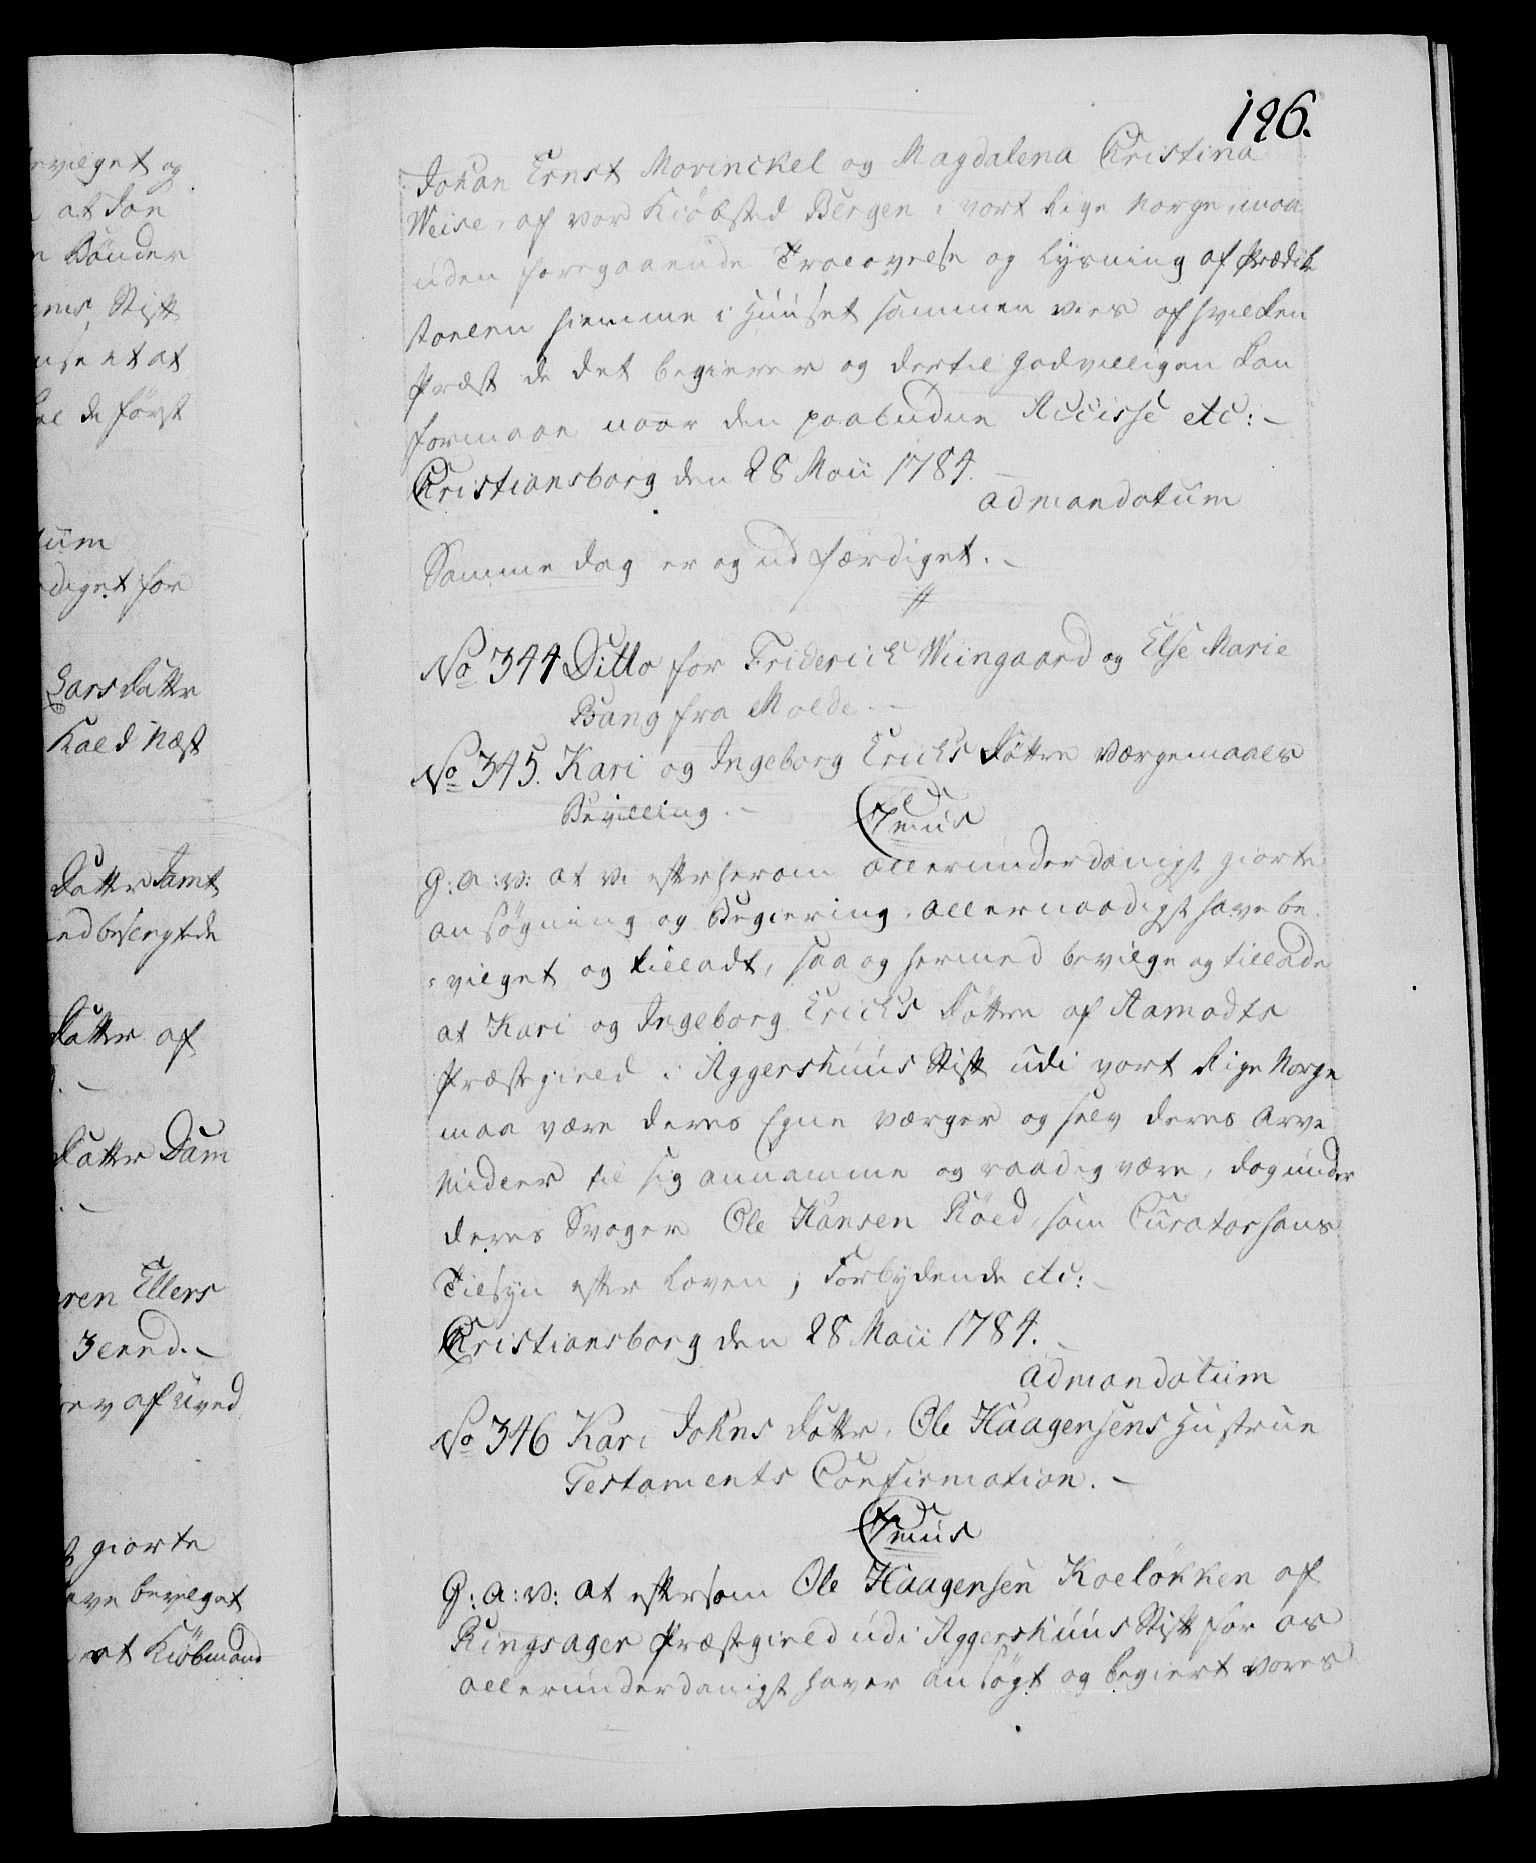 evilget og
at Jon
Bönder
ms, Stift
at
de först
tum
diget for
Lars Datter
Kald Næst
Datter Samt
Datter af
Datter Dam
ren Ellers
3 ennd.
af Hved
giorte
ave bevilget
at Kiöbmand
196.
Johan Ernst Movinckel og Magdalena Christina
Weise, af vor Kiöbsted Bergen i vort Rige Norge, maa
uden foregaaende Trolovelse og Lysning af Prædike
stoelen hiemme i Huuset sammen vies af hvilken
Præst de det begierer og dertil godvilligen kan
formaae naar den paabudne Accisse etc:
Christiansborg den 28 Maii 1784.
ad mandatum
Samme dag er og udfærdiget.
No 344 Ditto for Friderich Wiingaard og Else Marie
Bang fra Molde.
No 345. Kari og Ingeborg Erichs Döttre Værgemaals
Bevilling.
G: a: v: at vi efter herom allerunderdanigst giorte
ansögning og Begiering, allernaadigst have be-
vilget og tilladt, saa og hermed bevilge og tillade
at Kari og Ingeborg Erichs Döttre af Aamodts
Præstegield i Aggershuus Stift udi vort Rige Norge
maa være deres Egne værger og selv deres Arve
Midler til sig annamme og raadig være, dog under
deres Svoger Ole Hansen Röed, som Curator hans
Tilsyn efter Loven; Forbydende etc:
Christiansborg den 28 Maii 1784.
ad mandatum
No 346 Kari Johns Datter, Ole Haagensens Hustrue
Testaments Confirmation.
G: a: v: at eftersom Ole Haagensen Koelökken af
Ringsager Præstegield udi Aggershuus Stift for os
allerunderdanigst haver ansögt og begiert vores